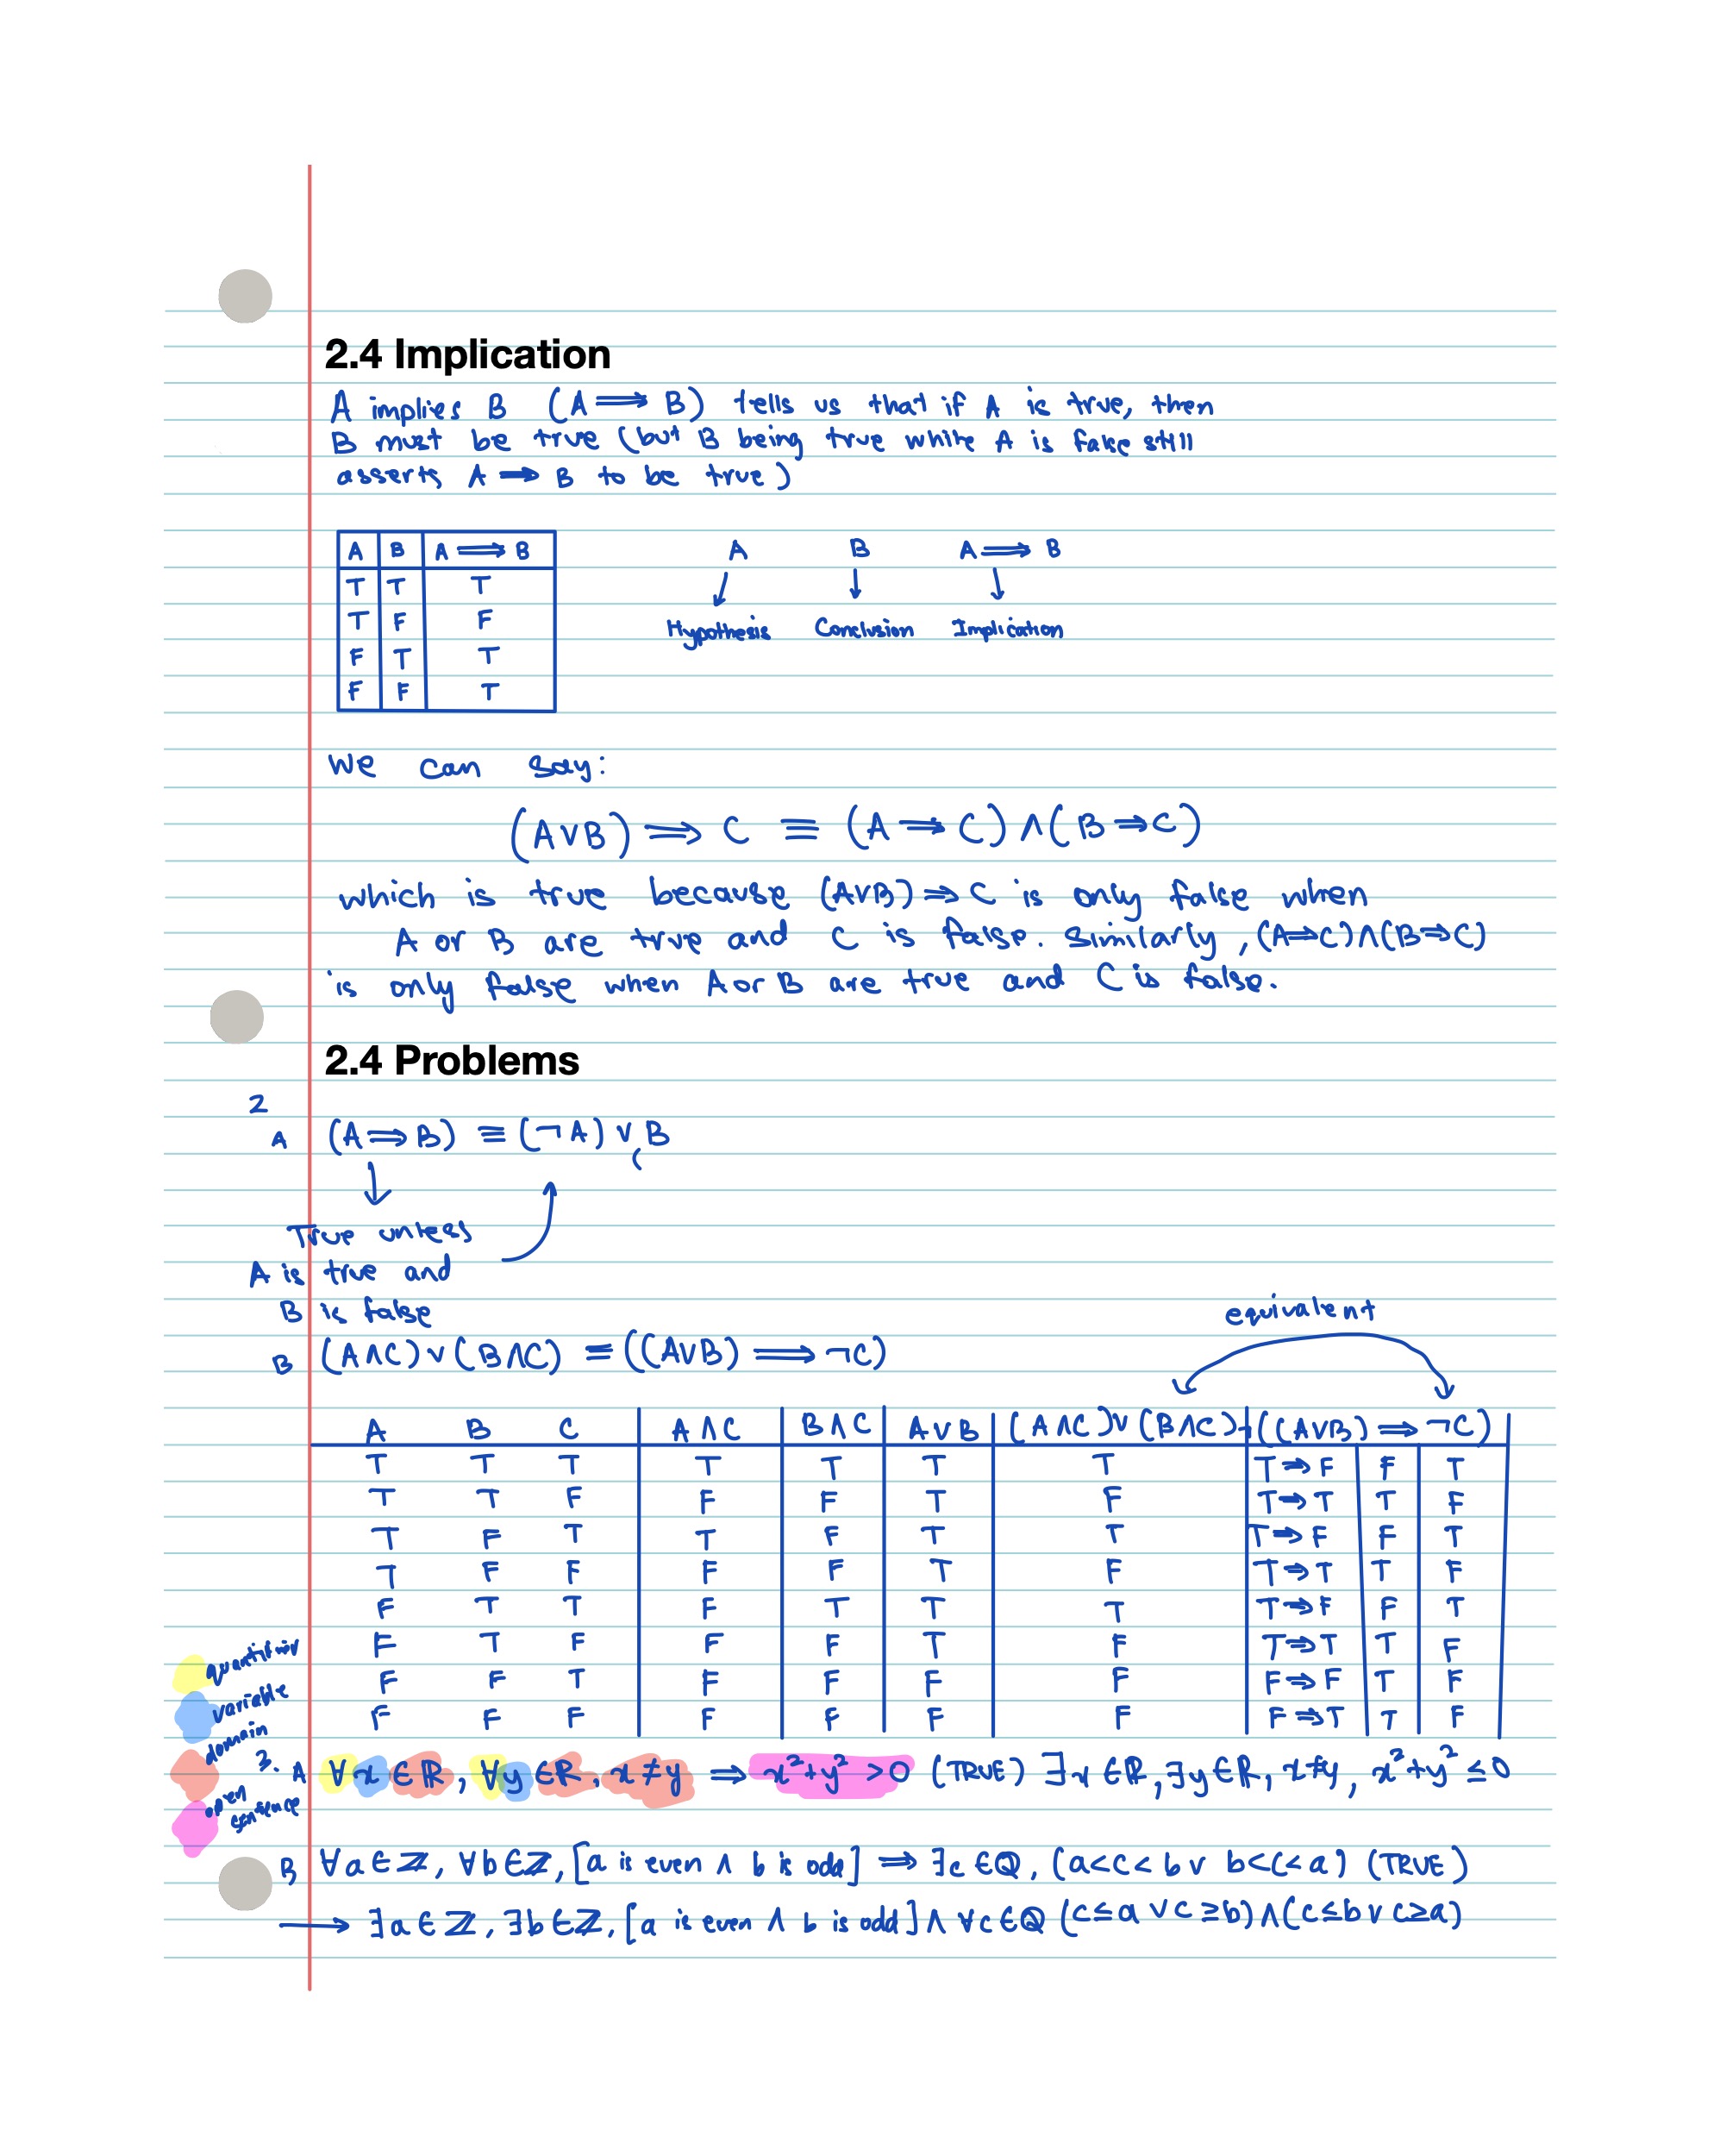 2.4 Implication
A implies B (A ⟹ B) tells us that if A is true, then
B must be true (but B being true while A is false still
asserts A ⟹ B to be true)
A B A ⟹ B
T T T
T F F
F T T
F F T
A B A ⟹ B
Hypothesis Conclusion Implication
We can say:
(A∨B) ⟹ C ≡ (A ⟹ C) ∧ (B ⟹ C)
which is true because (A∨B) ⟹ C is only false when
A or B are true and C is false. Similarly, (A⟹C)∧(B⟹C)
is only false when A or B are true and C is false.
2.4 Problems
2
A (A ⟹ B) ≡ (¬A) ∨ B
True unless
A is true and
B is false
equivalent
B (A∧C) ∨ (B∧C) ≡ ((A∨B) ⟹ ¬C)
A B C A∧C B∧C A∨B (A∧C)∨(B∧C) ¬((A∨B) ⟹ ¬C)
T T T T T T T T⟹F F T
T T F F F T F T⟹T T F
T F T T F T T T⟹F F T
T F F F F T F T⟹T T F
F T T F T T T T⟹F F T
F T F F F T F T⟹T T F
F F T F F F F F⟹F T F
F F F F F F F F⟹T T F
quantifier
variable
domain
open
sentence
3. A ∀x∈ℝ, ∀y∈ℝ, x≠y ⟹ x²+y²>0 (TRUE) ∃x∈ℝ, ∃y∈ℝ, x≠y, x²+y²≤0
B ∀a∈ℤ, ∀b∈ℤ, [a is even ∧ b is odd] ⟹ ∃c∈ℚ, (a<c<b ∨ b<c<a) (TRUE)
→ ∃a∈ℤ, ∃b∈ℤ, [a is even ∧ b is odd] ∧ ∀c∈ℚ (c≤a ∨ c≥b)∧(c≤b ∨ c≥a)